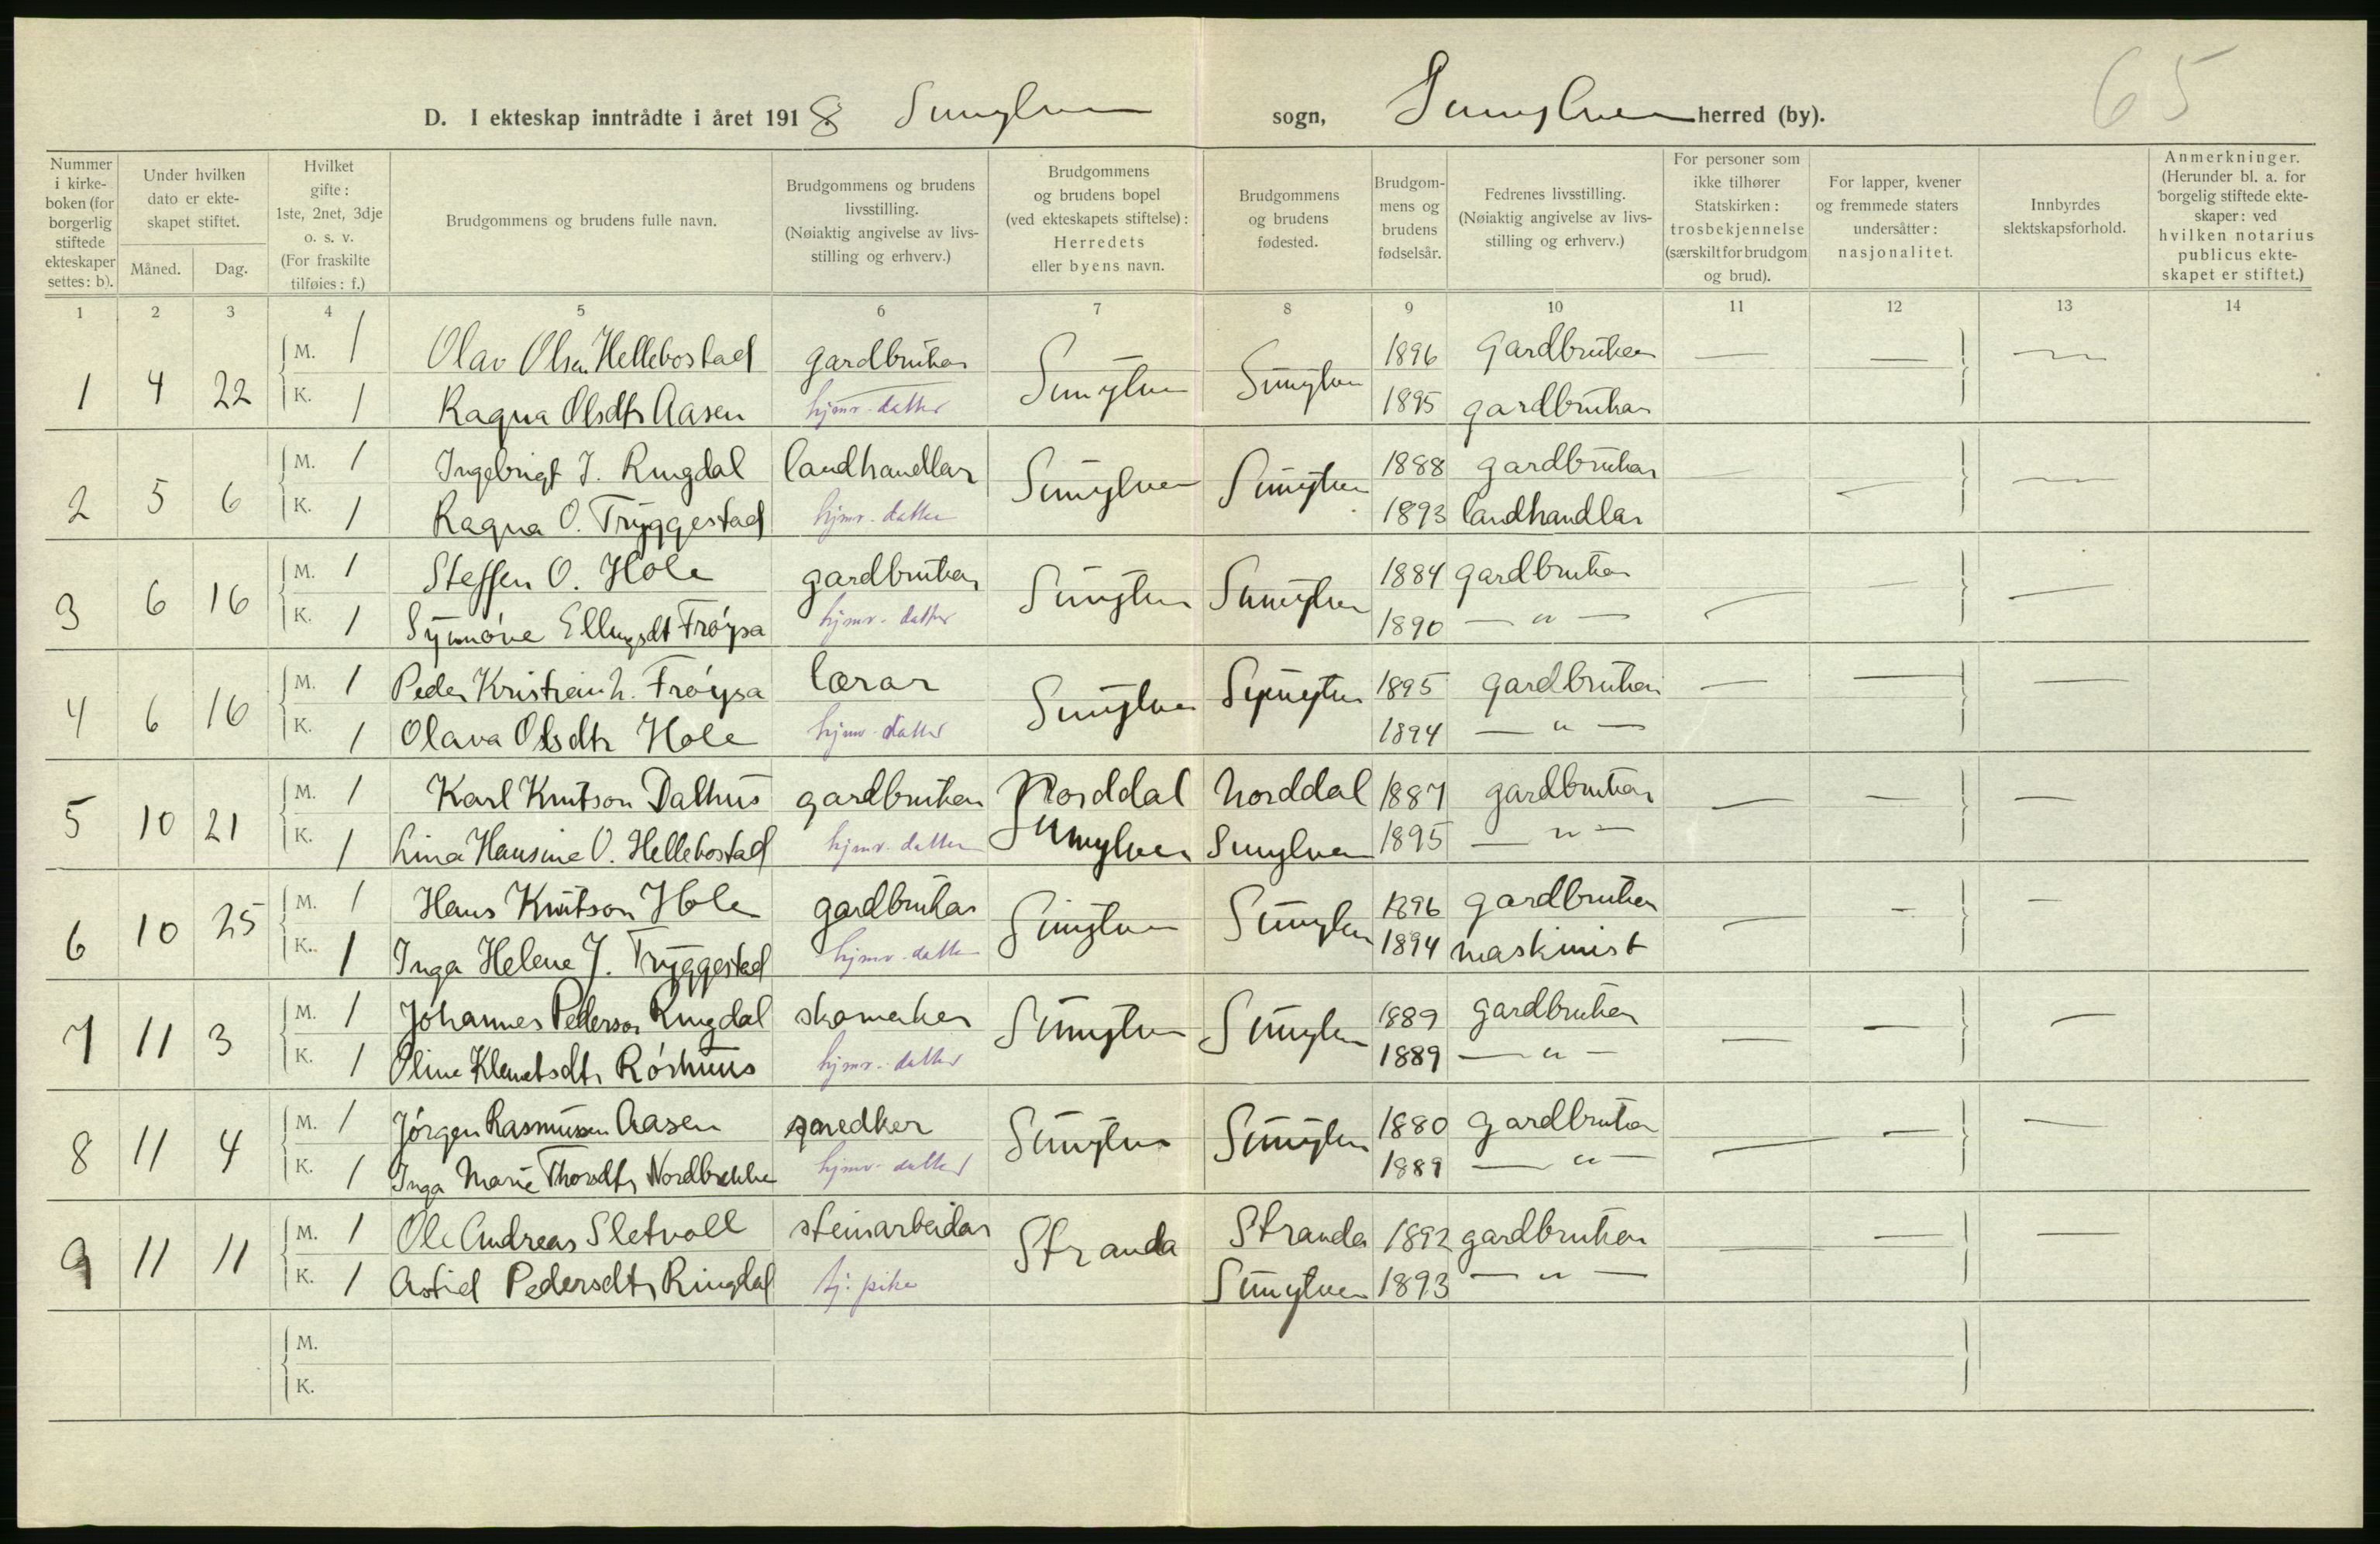 65
D. I ekteskap inntrådte i året 1918 Sunylven sogn, Sunylven herred (by).
Nummer i kirke-boken (for borgerlig stiftede ekteskaper settes: b).
Under hvilken dato er ekte-skapet stiftet.
Måned. Dag.
Hvilket gifte: 1ste, 2net, 3dje o. s. v. (For fraskilte tilføies: f.)
Brudgommens og brudens fulle navn.
Brudgommens og brudens livsstilling. (Nøiaktig angivelse av livs-stilling og erhverv.)
Brudgommens og brudens bopel (ved ekteskapets stiftelse): Herredets eller byens navn.
Brudgommens og brudens fødested.
Brudgom-mens og brudens fødselsår.
Fedrenes livsstilling. (Nøiaktig angivelse av livs-stilling og erhverv.)
For personer som ikke tilhører Statskirken: trosbekjennelse (særskilt for brudgom og brud).
For lapper, kvener og fremmede staters undersåtter: nasjonalitet.
Innbyrdes slektskapsforhold.
Anmerkninger. (Herunder bl. a. for borgelig stiftede ekte-skaper: ved hvilken notarius publicus ekte-skapet er stiftet.)
1 2 3 4 5 6 7 8 9 10 11 12 13 14
M. 1 Olav Olsen Hellebostad gardbrukar 1896 gardbrukar — — —
1 4 22 Sunylven Sunylven
K. 1 Ragna Olsdtr Aasen hjmv. datter 1895 gardbrukar
M. 1 Ingebrigt J. Ringdal landhandlar 1888 gardbrukar — — —
2 5 6 Sunylven Sunylven
K. 1 Ragna O. Tryggestad hjmv. datter 1893 landhandlar
M. 1 Steffen O. Hole gardbrukar 1884 gardbrukar — — —
3 6 16 Sunylven Sunylven
K. 1 Synnóve Ellingsdt Fróysa hjmv. datter 1890 — " —
M. 1 Peder Kristian h. Fróysa lærar 1895 gardbrukar — — —
4 6 16 Sunylven Sunylven
K. 1 Olava Olsdtr Hole hjmv. datter 1894 — " —
M. 1 Karl Knutson Dalhus gardbrukar Norddal Norddal 1887 gardbrukar — — —
5 10 21
K. 1 Lina Hansine O. Hellebostad hjmv. datter Sunylven Sunylven 1895 — " —
M. 1 Hans Knutson Hole gardbrukar 1896 gardbrukar — — —
6 10 25 Sunylven Sunylven
K. 1 Inga Helene J. Tryggestad hjmv. datter 1894 maskinist
M. 1 Johannes Pederson Ringdal skomaker 1889 gardbrukar — — —
7 11 3 Sunylven Sunylven
K. 1 Oline Klemetsdtr Rórhuus hjmv. datter 1889 — " —
M. 1 Jórgen Rasmussen Aasen snedker 1880 gardbrukar — — —
8 11 4 Sunylven Sunylven
K. 1 Inga Marie Thorsdtr Nordbrekke hjmv. datter 1889 — " —
M. 1 Ole Andreas Sletvoll steinarbeidar Stranda 1892 gardbrukar — — —
9 11 11 Stranda
K. 1 Astid Pedersdtr Ringdal tj. pike Sunylven 1893 — " —
M.
K.